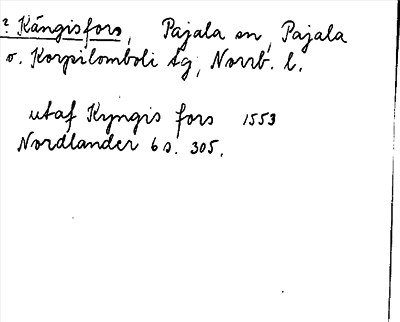 ? Kängisfors, Pajala sn, Pajala
o. Korpilombolo tg, Norrb. l.
utaf Kyngis fors 1553
Nordlander 6 s. 305.